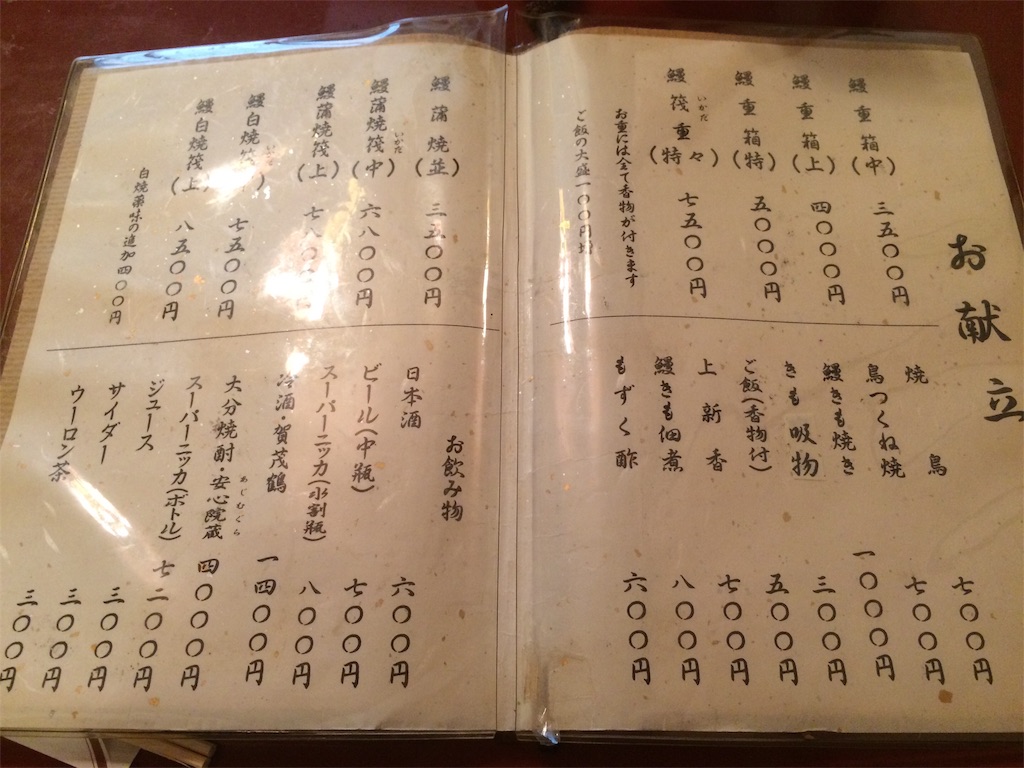 お献立
鰻重箱(中) 三五〇〇円
鰻重箱(上) 四〇〇〇円
鰻重箱(特) 五〇〇〇円
いかだ
鰻筏重(特々) 七五〇〇円
お重には全て香物が付きます
ご飯の大盛一〇〇円増
焼鳥 七〇〇円
鳥つくね焼 七〇〇円
鰻きも焼き 一〇〇〇円
きも吸物 三〇〇円
ご飯(香物付) 五〇〇円
上新香 七〇〇円
鰻きも佃煮 八〇〇円
もずく酢 六〇〇円
鰻蒲焼(並) 三五〇〇円
いかだ
鰻蒲焼筏(中) 六八〇〇円
鰻蒲焼筏(上) 七八〇〇円
鰻白焼筏 七五〇〇円
鰻白焼筏(上) 八五〇〇円
白焼薬味の追加四〇〇円
お飲み物
日本酒 六〇〇円
ビール(中瓶) 七〇〇円
スーパーニッカ(水割瓶) 八〇〇円
冷酒・賀茂鶴 一四〇〇円
あじむくら
大分焼酎・安心院蔵 四〇〇〇円
スーパーニッカ(ボトル) 七二〇〇円
ジュース 三〇〇円
サイダー 三〇〇円
ウーロン茶 三〇〇円